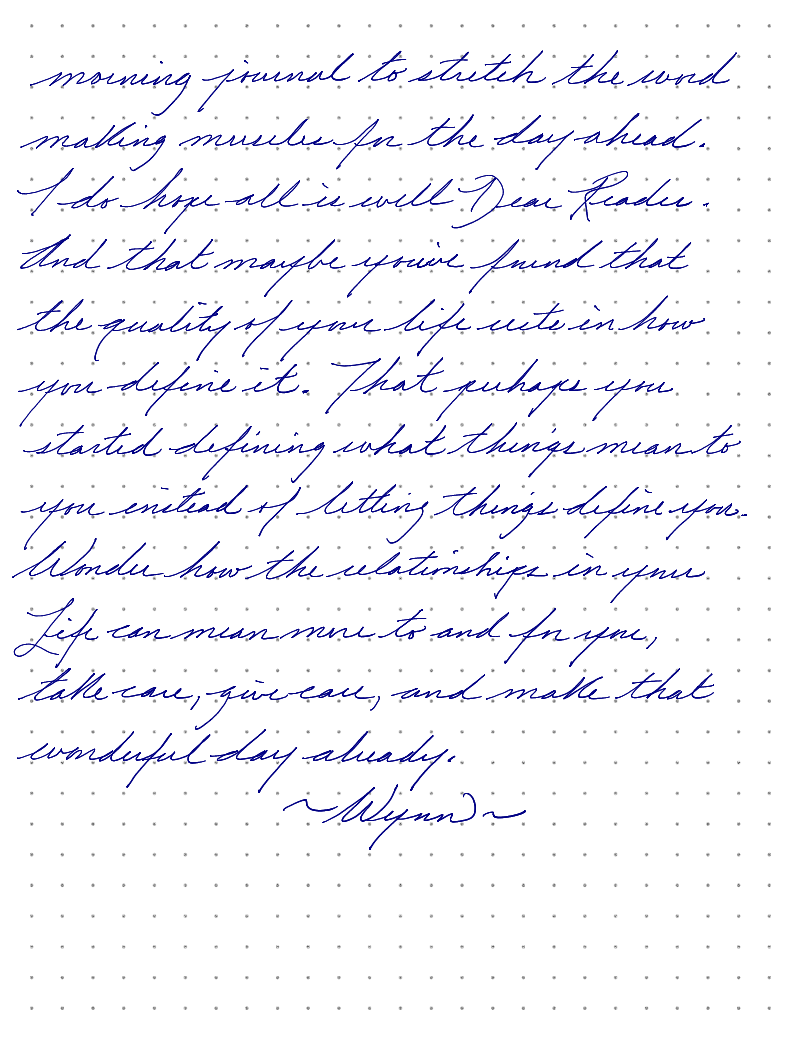 morning journal to stretch the word
making muscles for the day ahead.
I do hope all is well Dear Reader.
And that maybe you've found that
the quality of your life rests in how
you define it. That perhaps you
started defining what things mean to
you instead of letting things define you.
Wonder how the relationships in your
Life can mean more to and for you,
take care, give care, and make that
wonderful day already.
~Wynn~